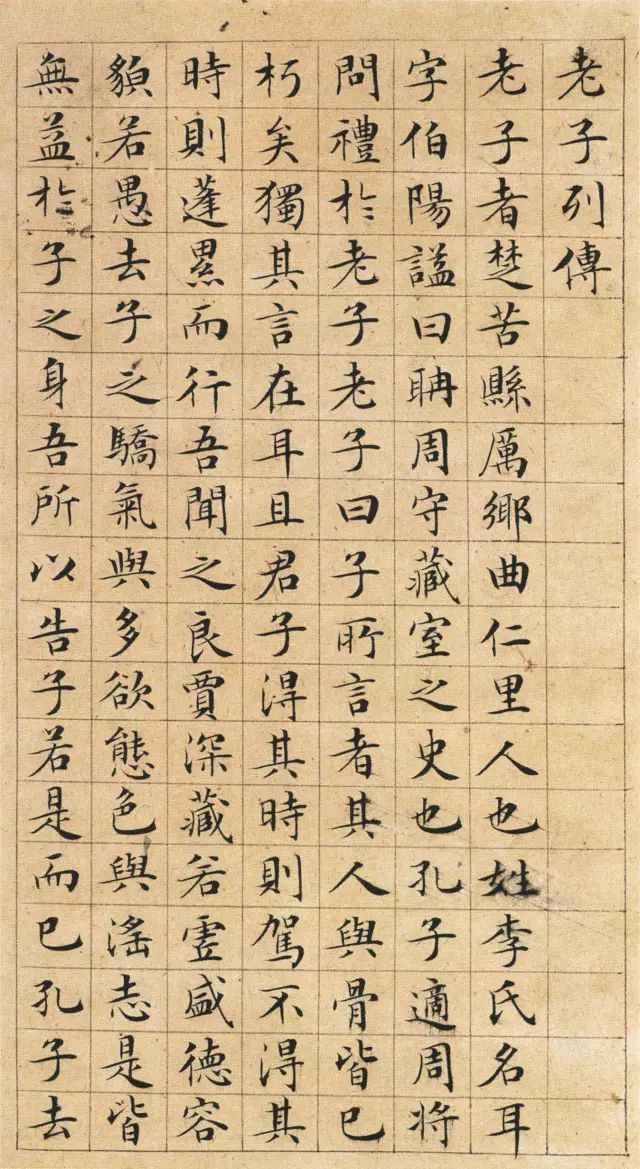 老子列傳
老子者楚苦縣厲鄉曲仁里人也姓李氏名耳
字伯陽謚曰聃周守藏室之史也孔子適周将
問禮於老子老子曰子所言者其人與骨皆已
朽矣獨其言在耳且君子得其時則駕不得其
時則蓬累而行吾聞之良賈深藏若虛盛德容
貌若愚去子之驕氣與多欲態色與滛志是皆
無益於子之身吾所以告子若是而已孔子去